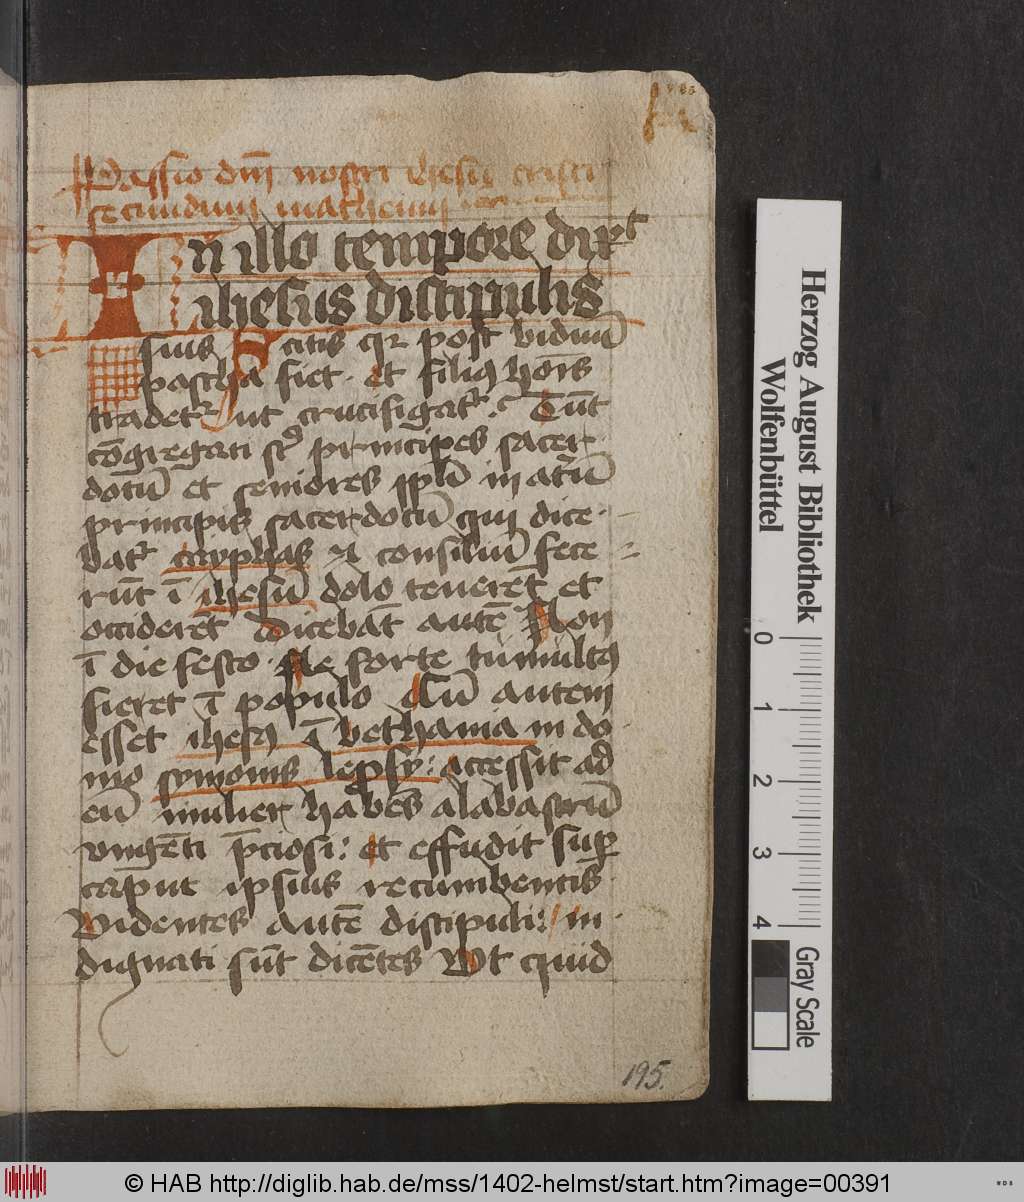 Passio dn̄i nostri ihesu cristi
secundum matheum
In illo tempore dixͭ
ihesus discipulis
suis Scitis qꝛ post biduū
pascha fiet · et filiꝰ hoīs
tradetᷣ ut crucifigatᷣ. Tūt
cōgregati sꝰ principes sacer
dotū et seniores ppl̄i in atriū
principis sacerdotū qui dice
batᷣ cayphas ⁊ consiliū fece
rūt ī ihesū dolo tenerēt et
occiderēt Dicebāt autē Non
ī die festo · Ne forte tumultꝰ
fieret ī populo Cū autem
esset ihesꝰ ī bethania in do
mo symonis leprosy: accessit ad
eū mulier habēs alabastrū
vngēti p̄ciosi: et effudit suꝑ
caput ipsius recumbentis
Videntes autē discipuli: in
dignati sūt dicētes Vt quid
195.
Herzog August Bibliothek
Wolfenbüttel
0 1 2 3 4
Gray Scale
© HAB http://diglib.hab.de/mss/1402-helmst/start.htm?image=00391